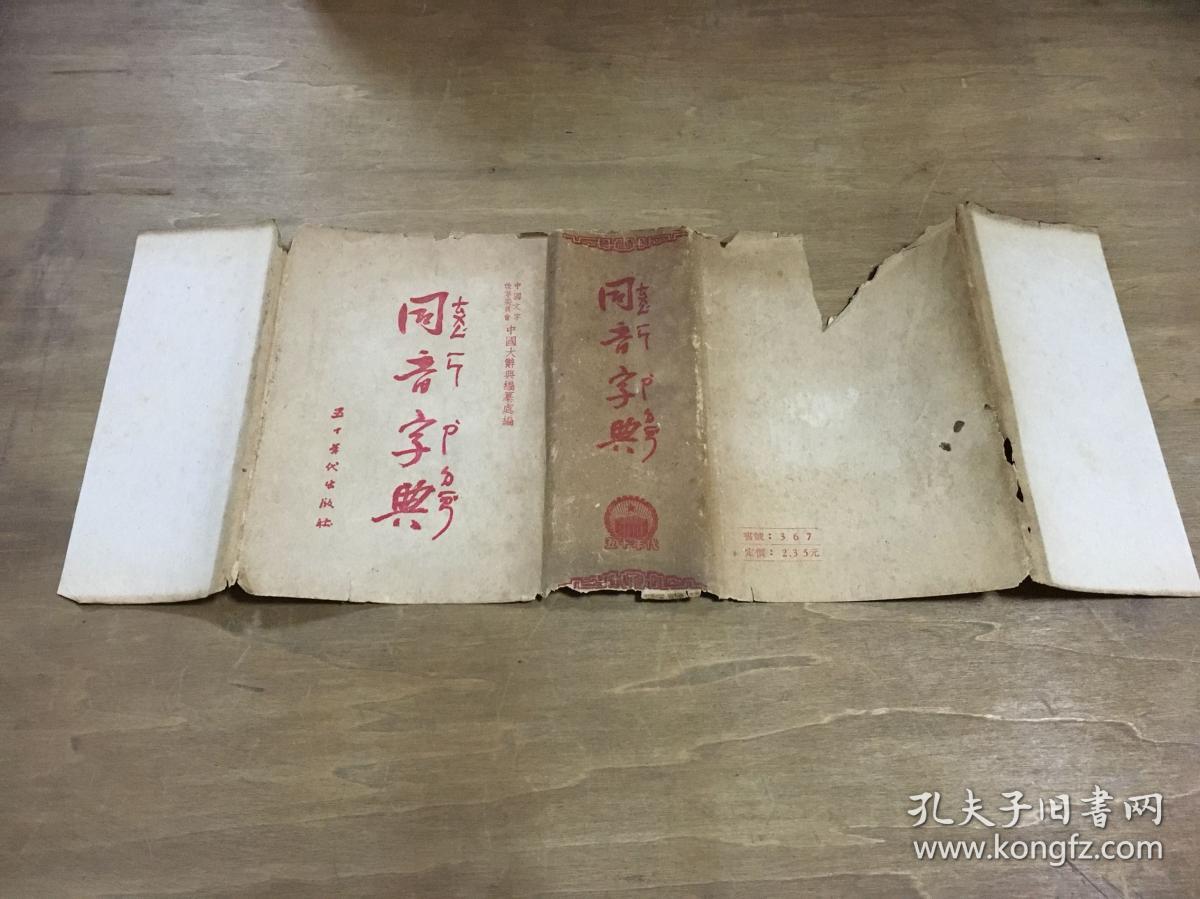 中國文字
改革委員會
中國大辭典編纂處編
同音字典
五十年代出版社
同音字典
五十年代
書號：367
定價：2.35元
孔夫子旧书网
www.kongfz.com